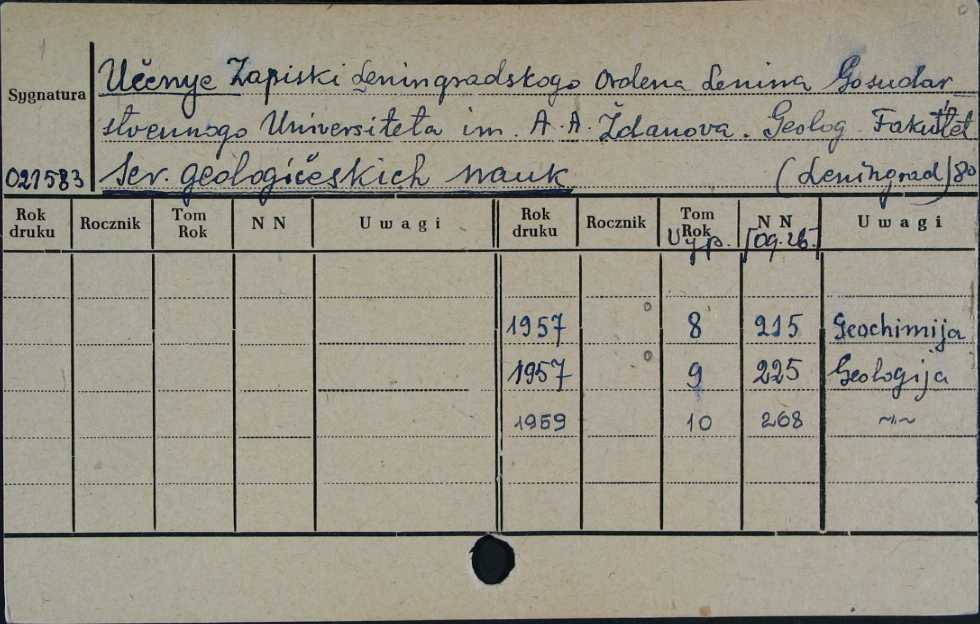 Učenye Zapiski Leningradskogo Ordena Lenina Gosudar
Sygnatura stvennogo Universiteta im. A. A. Ždanova. Geolog. Fakul'tet
021583 Ser. geologičeskich nauk (Leningrad) 80
Rok druku Rocznik Tom Rok N N Uwagi Rok druku Rocznik Tom Rok Vyp. N N [og. zb.] Uwagi
1957 8 215 Geochimija
1957 9 225 Geologija
1959 10 268 ~"~